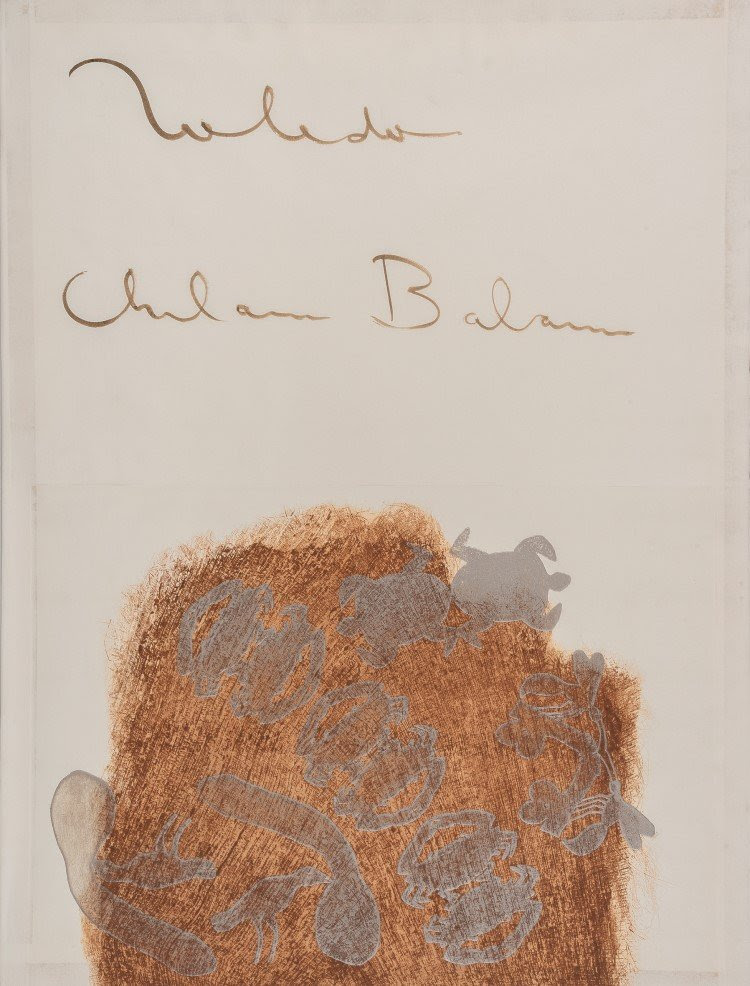 Toledo
Chilam Balam